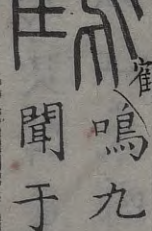 鶴鳴九
聞于